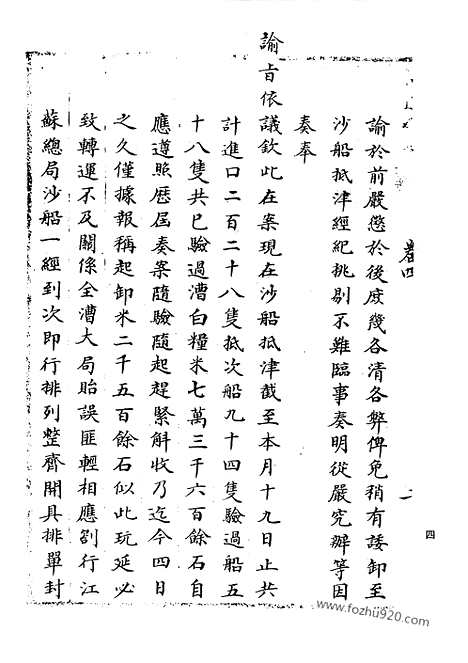 諭於前嚴懲於後庶幾各清各弊俾免稍有諉卸至
沙船抵津經紀挑剔不難臨事奏明從嚴究辦等因
奏奉
諭旨依議欽此在案現在沙船抵津截至本月十九日止共
計進口二百二十八隻抵次船九十四隻驗過船五
十八隻共已驗過漕白糧米七萬三千六百餘石自
應遵照歷屆奏案隨驗隨起趕緊斛收乃迄今四日
之久僅據報稱起卸米二千五百餘石似此玩延必
致轉運不及關係全漕大局貽誤匪輕相應劄行江
蘇總局沙船一經到次即行排列整齊開具排單封
卷四
二
四
www.fozhu920.com